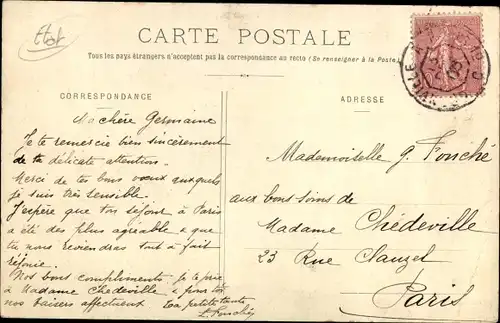 Etot
CARTE POSTALE
Tous les pays étrangers n'acceptent pas la correspondance au recto (Se renseigner à la Poste)
CORRESPONDANCE
Ma chère Germaine
Je te remercie bien sincèrement
de ta délicate attention.
Merci de tes bons voeux auxquels
je suis très sensible.
J'espère que ton séjour à Paris
a été des plus agréable & que
tu nous reviendras tout à fait
Nos bons compliments, je te prie
à Madame Chedeville & pour toi
nos baisers affectueux ta petite tante
L. Fouché
ADRESSE
Mademoiselle G. Fouché
aux bons soins de
Madame Chédeville
23 Rue Clauzel
Paris